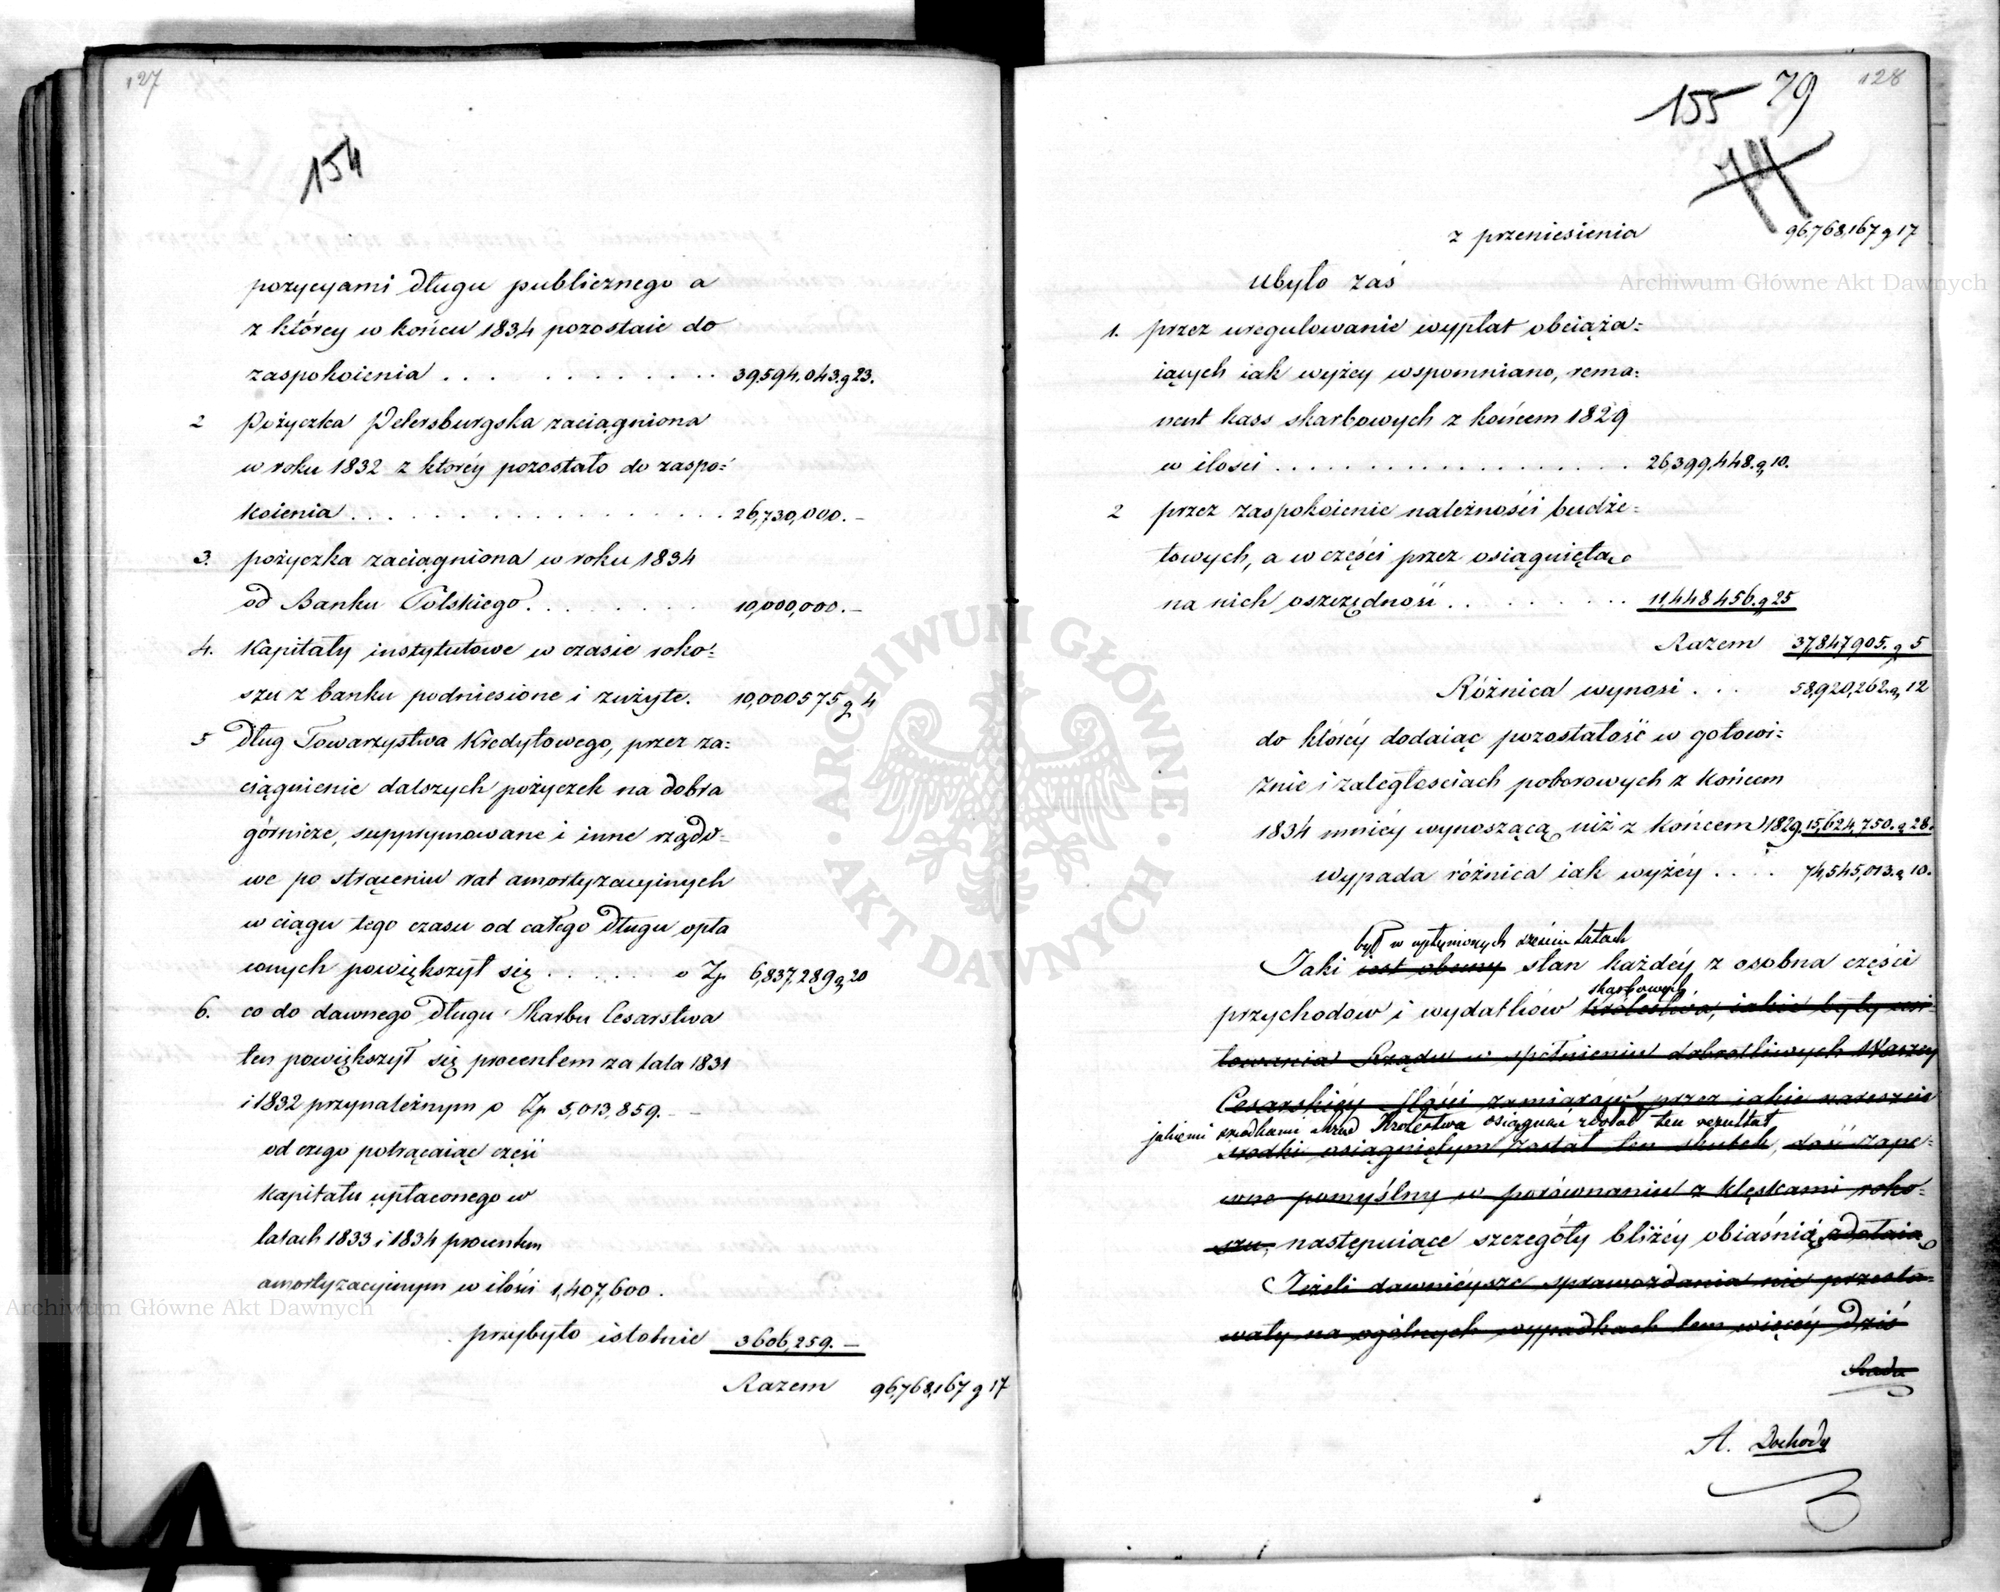 127
154
pozycyami długu publicznego a
z którey w końcu 1834 pozostaie do
zaspokoienia . . . . . . . . . . . 39,594,043.g 23.
2 Pożyczka Petersburgska zaciągniona
w roku 1832 z którey pozostało do zaspo=
koienia . . . . . . . . . . . . . . . . . 26,730,000. –
3. pożyczka zaciągniona w roku 1834
od Banku Polskiego . . . . . . . . 10,000,000. –
4. Kapitały instytutowe w czasie roko=
szu z banku podniesione i zużyte. 10,000575 g 4
5 Dług Towarzystwa Kredytowego, przez za=
ciągnienie dalszych pożyczek na dobra
górnicze, supprymowane i inne rządo=
we po strąceniu rat amortyzacyinych
w ciągu tego czasu od całego długu opła
conych powiększył się . . . . . o Zp. 6,837,289 g 20
6. co do dawnego długu Skarbu Cesarstwa
ten powiększył się procentem za lata 1831
i 1832 przynależnym o Zp 5,013,859. –
od czego potrącaiąc części
kapitału upłaconego w
latach 1833 i 1834 procentem
amortyzacyinym w ilości 1,407,600.
przybyło istotnie 3606,259. –
Razem 96,768,167 g 17
128
155 79
74
z przeniesienia 96,768,167 g 17
Ubyło zaś
1. przez uregulowanie wypłat obciąża=
iących iak wyżey wspomniano, rema=
nent kass skarbowych z końcem 1829
w ilości . . . . . . . . . . . . . . . . . 26,399,448.g 10.
2 przez zaspokoienie należności budże=
towych, a w części przez osiągnięta
na nich oszczędność . . . . . . . . . 11,448 456.g 25
Razem 37,847 905. g 5
Różnica wynosi . . . 58,920,262.g 12
do którey dodaiąc pozostałość w gotowi=
znie i zaległościach poborowych z końcem
1834 mniey wynoszącą niż z końcem 1829. 15,624,750.g 28.
wypada różnica iak wyżéy . . . . 74,545,013.g 10.
był w upłynionych sześciu latach
Taki iest obecny stan każdéy z osobna części
skarbowych
przychodów i wydatków królestwa, iakie były usi=
łowania Rządu w spełnieniu dobrotliwych Waszey
Cesarskiéy Mości zamiarów, przez iakie nareszcie
jakiemi środkami Rząd Królestwa osiągnąć zdołał ten rezultat
środki osiągniętym został ten skutek, dość zape=
wne pomyślny w porównaniu z klęskami roko=
szu, następuiące szczegóły bliżéy obiaśnią
Jeżeli dawnieysze sprawozdania nie przesta=
wały na ogólnych wypadkach tem więcéy dziś
Rada
A. Dochody
Archiwum Główne Akt Dawnych
ARCHIWUM GŁÓWNE · AKT DAWNYCH ·
Archiwum Główne Akt Dawnych